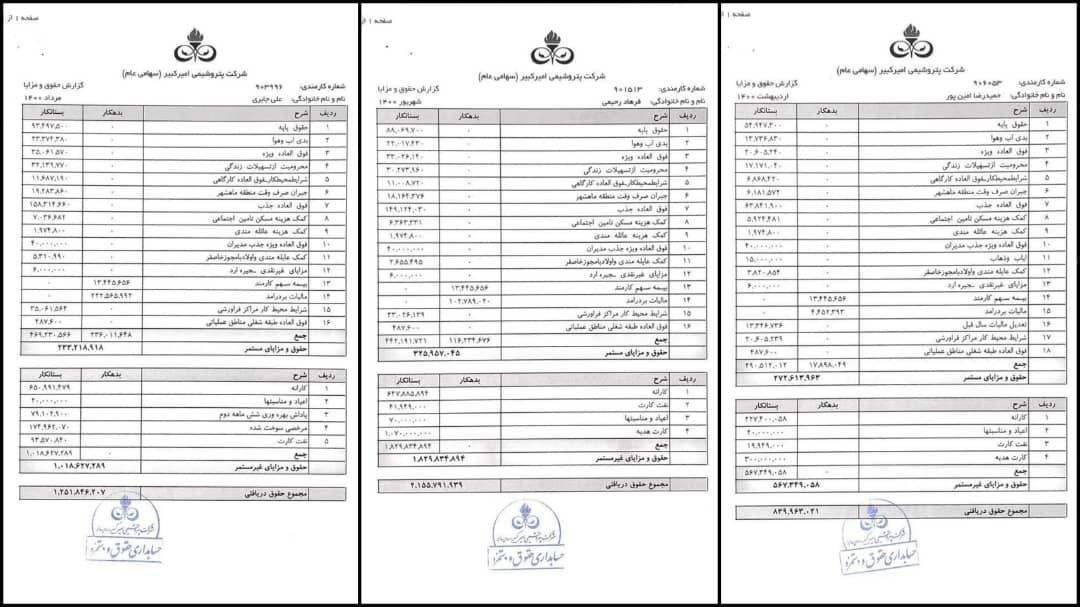 صفحه ۱ از
شرکت پتروشیمی امیرکبیر (سهامی عام)
شماره کارمندی: ۹۰۶۰۵۳ گزارش حقوق و مزایا
نام و نام خانوادگی: حمیدرضا امین پور اردیبهشت ۱۴۰۰
ردیف شرح بدهکار بستانکار
۱ حقوق پایه ۰ ۵۴,۹۴۷,۳۰۰
۲ بدی آب وهوا ۰ ۱۳,۷۳۶,۸۳۰
۳ فوق العاده ویژه ۰ ۲۰,۶۰۵,۲۴۰
۴ محرومیت ازتسهیلات زندگی ۰ ۱۷,۱۷۱,۰۴۰
۵ شرایطمحیطکار_فوق العاده کارگاهی ۰ ۶,۸۶۸,۴۲۰
۶ جبران صرف وقت منطقه ماهشهر ۰ ۶,۱۸۱,۵۷۲
۷ فوق العاده جذب ۰ ۶۳,۸۴۱,۹۰۰
۸ کمک هزینه مسکن تامین اجتماعی ۰ ۵,۹۲۴,۴۸۱
۹ کمک هزینه عائله مندی ۰ ۱,۹۷۴,۸۰۰
۱۰ فوق العاده ویژه جذب مدیران ۰ ۴۰,۰۰۰,۰۰۰
۱۱ ایاب وذهاب ۰ ۱۵,۰۰۰,۰۰۰
۱۲ کمک عایله مندی واولادبامجوزخاصقر ۰ ۳,۸۲۰,۸۵۴
۱۳ مزایای غیرنقدی _جیره ارد ۰ ۶,۰۰۰,۰۰۰
۱۴ بیمه سهم کارمند ۱۳,۴۴۵,۶۵۶ ۰
۱۵ مالیات بردرامد ۴,۴۵۲,۳۹۳ ۰
۱۶ تعدیل مالیات سال قبل ۰ ۱۳,۳۴۶,۷۳۶
۱۷ شرایط محیط کار مراکز فراورشی ۰ ۲۰,۶۰۵,۲۳۹
۱۸ فوق العاده طبقه شغلی مناطق عملیاتی ۰ ۴۸۷,۶۰۰
جمع ۱۷,۸۹۸,۰۴۹ ۲۹۰,۵۱۲,۰۱۲
حقوق و مزایای مستمر ۲۷۲,۶۱۳,۹۶۳
ردیف شرح بدهکار بستانکار
۱ کارانه ۰ ۲۲۷,۴۰۰,۰۵۸
۲ اعیاد و مناسبتها ۰ ۲۰,۰۰۰,۰۰۰
۳ نفت کارت ۰ ۱۹,۹۴۹,۰۰۰
۴ کارت هدیه ۰ ۳۰۰,۰۰۰,۰۰۰
جمع ۰ ۵۶۷,۳۴۹,۰۵۸
حقوق و مزایای غیرمستمر ۵۶۷,۳۴۹,۰۵۸
مجموع حقوق دریافتی ۸۳۹,۹۶۳,۰۲۱
حسابداری حقوق و دستمزد
صفحه ۱ از
شرکت پتروشیمی امیرکبیر (سهامی عام)
شماره کارمندی: ۹۰۱۵۱۳ گزارش حقوق و مزایا
نام و نام خانوادگی: فرهاد رحیمی شهریور ۱۴۰۰
ردیف شرح بدهکار بستانکار
۱ حقوق پایه ۰ ۸۸,۰۶۹,۷۰۰
۲ بدی آب وهوا ۰ ۲۲,۰۱۷,۴۳۰
۳ فوق العاده ویژه ۰ ۳۳,۰۲۶,۱۴۰
۴ محرومیت ازتسهیلات زندگی ۰ ۳۰,۲۷۳,۹۶۰
۵ شرایطمحیطکار_فوق العاده کارگاهی ۰ ۱۱,۰۰۸,۷۲۰
۶ جبران صرف وقت منطقه ماهشهر ۰ ۱۸,۱۶۴,۳۷۶
۷ فوق العاده جذب ۰ ۱۴۹,۱۲۴,۰۳۰
۸ کمک هزینه مسکن تامین اجتماعی ۰ ۶,۳۶۳,۲۳۱
۹ کمک هزینه عائله مندی ۰ ۱,۹۷۴,۸۰۰
۱۰ فوق العاده ویژه جذب مدیران ۰ ۴۰,۰۰۰,۰۰۰
۱۱ کمک عایله مندی واولادبامجوزخاصقر ۰ ۲,۶۵۵,۴۹۵
۱۲ مزایای غیرنقدی _جیره ارد ۰ ۶,۰۰۰,۰۰۰
۱۳ بیمه سهم کارمند ۱۳,۴۴۵,۶۵۶ ۰
۱۴ مالیات بردرامد ۱۰۲,۷۸۹,۰۲۰ ۰
۱۵ شرایط محیط کار مراکز فراورشی ۰ ۳۳,۰۲۶,۱۳۹
۱۶ فوق العاده طبقه شغلی مناطق عملیاتی ۰ ۴۸۷,۶۰۰
جمع ۱۱۶,۲۳۴,۶۷۶ ۴۴۲,۱۹۱,۷۲۱
حقوق و مزایای مستمر ۳۲۵,۹۵۷,۰۴۵
ردیف شرح بدهکار بستانکار
۱ کارانه ۰ ۶۴۷,۸۸۵,۸۹۴
۲ نفت کارت ۰ ۴۱,۹۴۹,۰۰۰
۳ اعیاد و مناسبتها ۰ ۷۰,۰۰۰,۰۰۰
۴ کارت هدیه ۰ ۱,۰۷۰,۰۰۰,۰۰۰
جمع ۰ ۱,۸۲۹,۸۳۴,۸۹۴
حقوق و مزایای غیرمستمر ۱,۸۲۹,۸۳۴,۸۹۴
مجموع حقوق دریافتی ۲,۱۵۵,۷۹۱,۹۳۹
حسابداری حقوق و دستمزد
صفحه ۱ از
شرکت پتروشیمی امیرکبیر (سهامی عام)
شماره کارمندی: ۹۰۳۹۹۶ گزارش حقوق و مزایا
نام و نام خانوادگی: علی جابری مرداد ۱۴۰۰
ردیف شرح بدهکار بستانکار
۱ حقوق پایه ۰ ۹۳,۴۹۷,۵۰۰
۲ بدی آب وهوا ۰ ۲۳,۳۷۴,۳۸۰
۳ فوق العاده ویژه ۰ ۳۵,۰۶۱,۵۷۰
۴ محرومیت ازتسهیلات زندگی ۰ ۳۲,۱۳۹,۷۷۰
۵ شرایطمحیطکار_فوق العاده کارگاهی ۰ ۱۱,۶۸۷,۱۹۰
۶ جبران صرف وقت منطقه ماهشهر ۰ ۱۹,۲۸۳,۸۶۰
۷ فوق العاده جذب ۰ ۱۵۸,۳۱۴,۶۶۰
۸ کمک هزینه مسکن تامین اجتماعی ۰ ۷,۰۳۶,۶۸۲
۹ کمک هزینه عائله مندی ۰ ۱,۹۷۴,۸۰۰
۱۰ فوق العاده ویژه جذب مدیران ۰ ۴۰,۰۰۰,۰۰۰
۱۱ کمک عایله مندی واولادبامجوزخاصقر ۰ ۵,۳۱۰,۹۹۰
۱۲ مزایای غیرنقدی _جیره ارد ۰ ۶,۰۰۰,۰۰۰
۱۳ بیمه سهم کارمند ۱۳,۴۴۵,۶۵۶ ۰
۱۴ مالیات بردرامد ۲۲۲,۵۶۵,۹۹۲ ۰
۱۵ شرایط محیط کار مراکز فراورشی ۰ ۳۵,۰۶۱,۵۶۴
۱۶ فوق العاده طبقه شغلی مناطق عملیاتی ۰ ۴۸۷,۶۰۰
جمع ۲۳۶,۰۱۱,۶۴۸ ۴۶۹,۲۳۰,۵۶۶
حقوق و مزایای مستمر ۲۳۳,۲۱۸,۹۱۸
ردیف شرح بدهکار بستانکار
۱ کارانه ۰ ۶۵۰,۹۹۱,۴۷۹
۲ اعیاد و مناسبتها ۰ ۲۰,۰۰۰,۰۰۰
۳ پاداش بهره وری شش ماهه دوم ۰ ۷۹,۱۰۲,۹۰۰
۴ مرخصی سوخت شده ۰ ۱۷۴,۹۶۲,۰۷۰
۵ نفت کارت ۰ ۹۳,۵۷۰,۸۴۰
جمع ۰ ۱,۰۱۸,۶۲۷,۲۸۹
حقوق و مزایای غیرمستمر ۱,۰۱۸,۶۲۷,۲۸۹
مجموع حقوق دریافتی ۱,۲۵۱,۸۴۶,۲۰۷
حسابداری حقوق و دستمزد